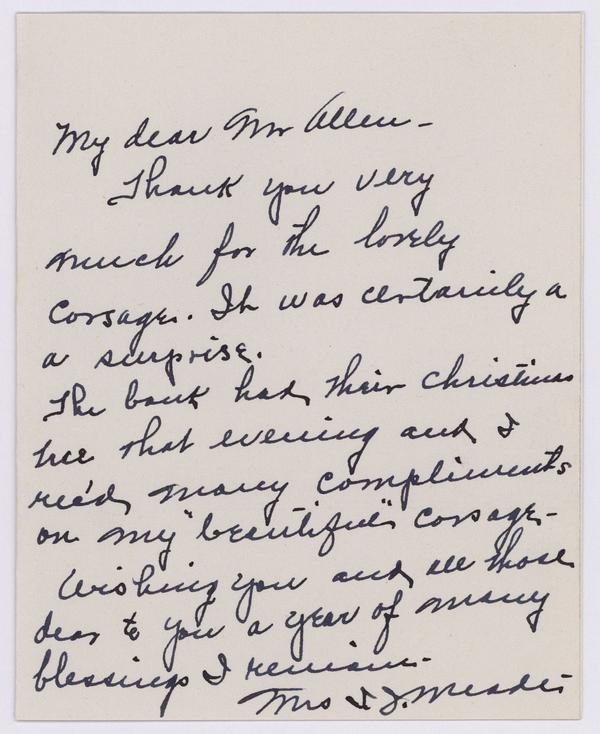 My dear Mr Allen -
Thank you very
much for the lovely
Corsage. It was certainly a
a surprise.
The bank had their Christmas
tree that evening and I
rec'd many compliments
on my "beautiful" corsage -
Wishing you and all those
dear to you a year of many
blessings I remain -
Mrs I. J.